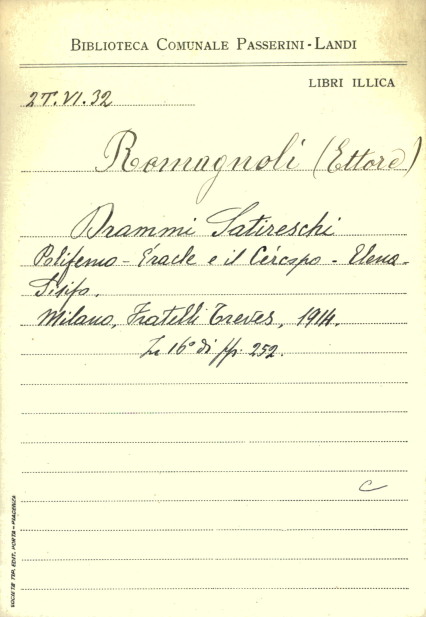 BIBLIOTECA COMUNALE PASSERINI-LANDI
LIBRI ILLICA
2T.VI.32
Romagnoli (Ettore)
Drammi Satireschi
Polifemo - Éracle e il Cércopo - Elena -
Sisifo.
Milano, Fratelli Treves, 1914.
In 16° di pp. 252.
C
SOCIETÀ TIP. EDIT. PORTA - PIACENZA